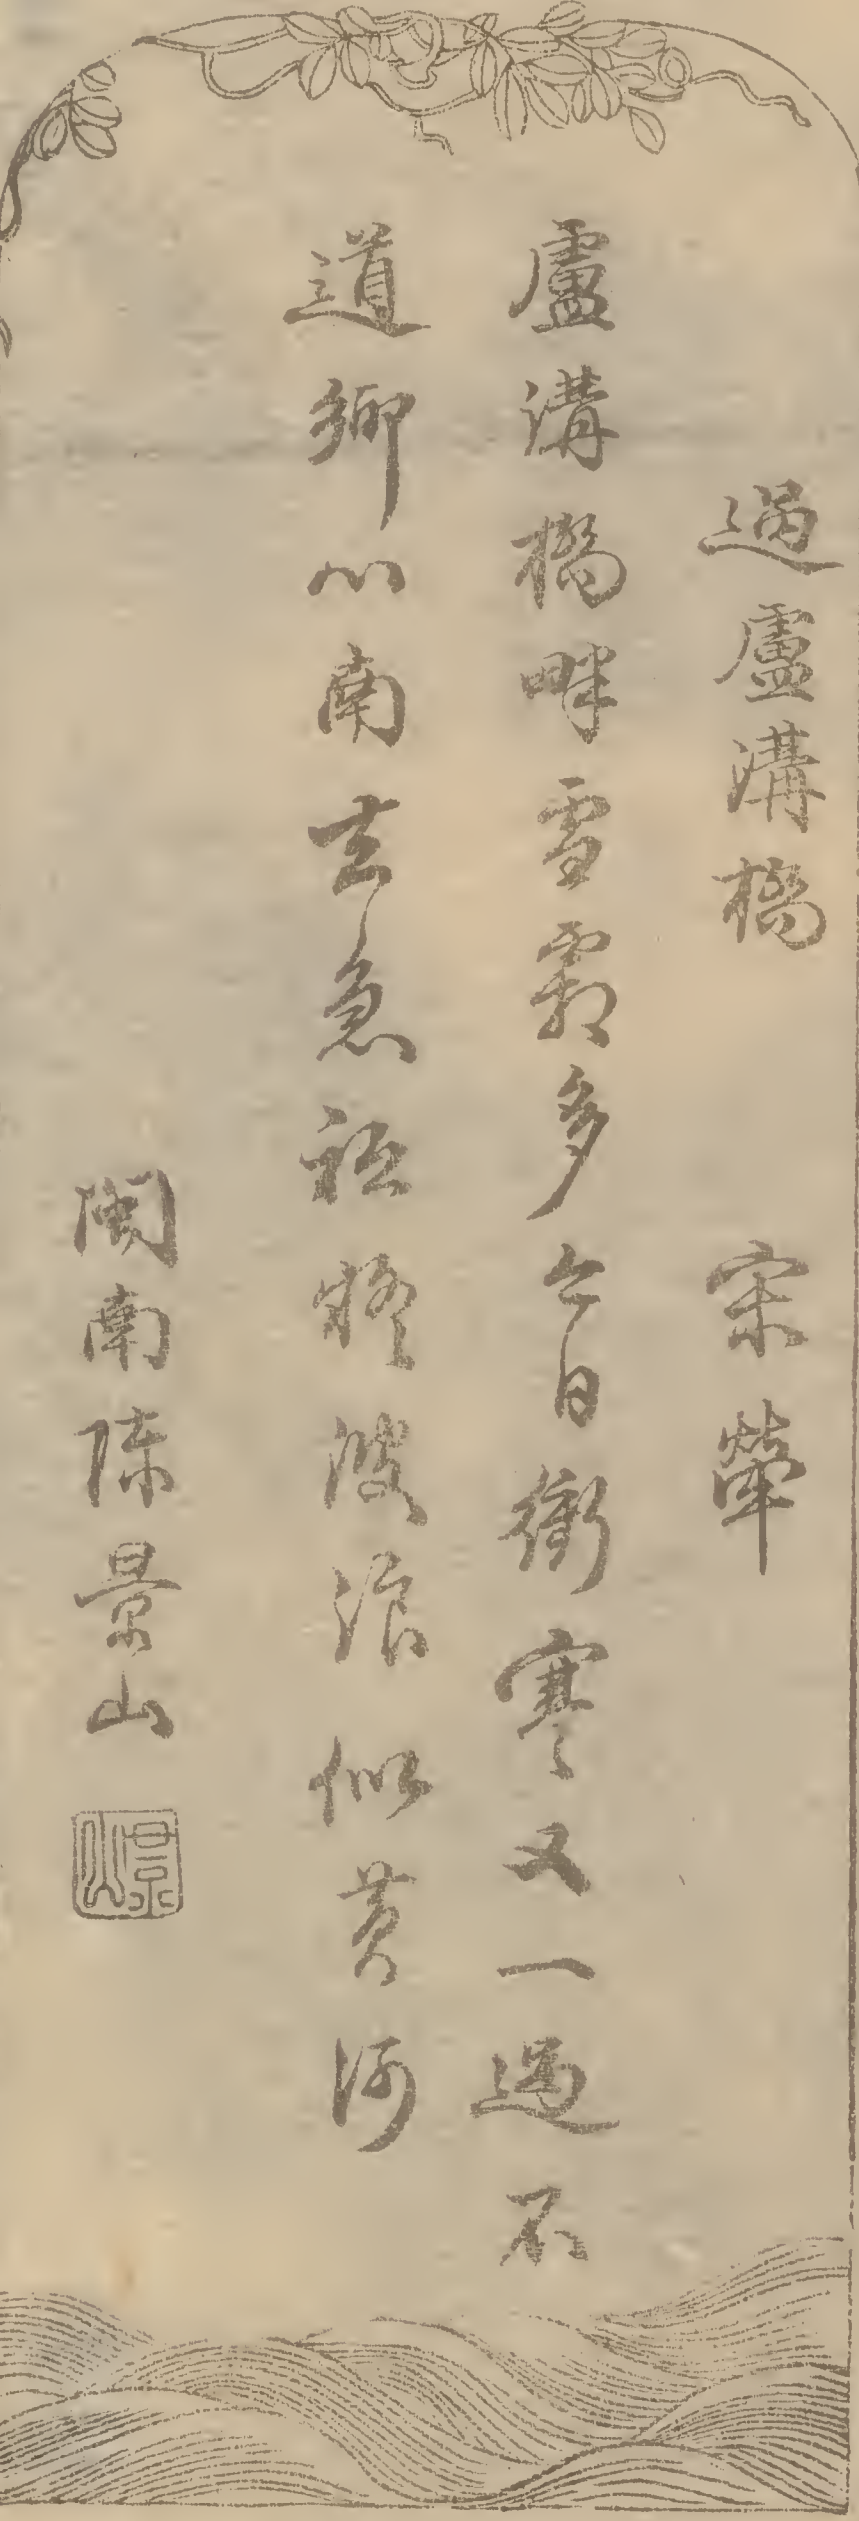 過盧溝橋　宋犖
盧溝橋畔雪霜多今日衝寒又一過不
道鄉心南去急祗疑波浪似黃河
閩南陳景山
景山